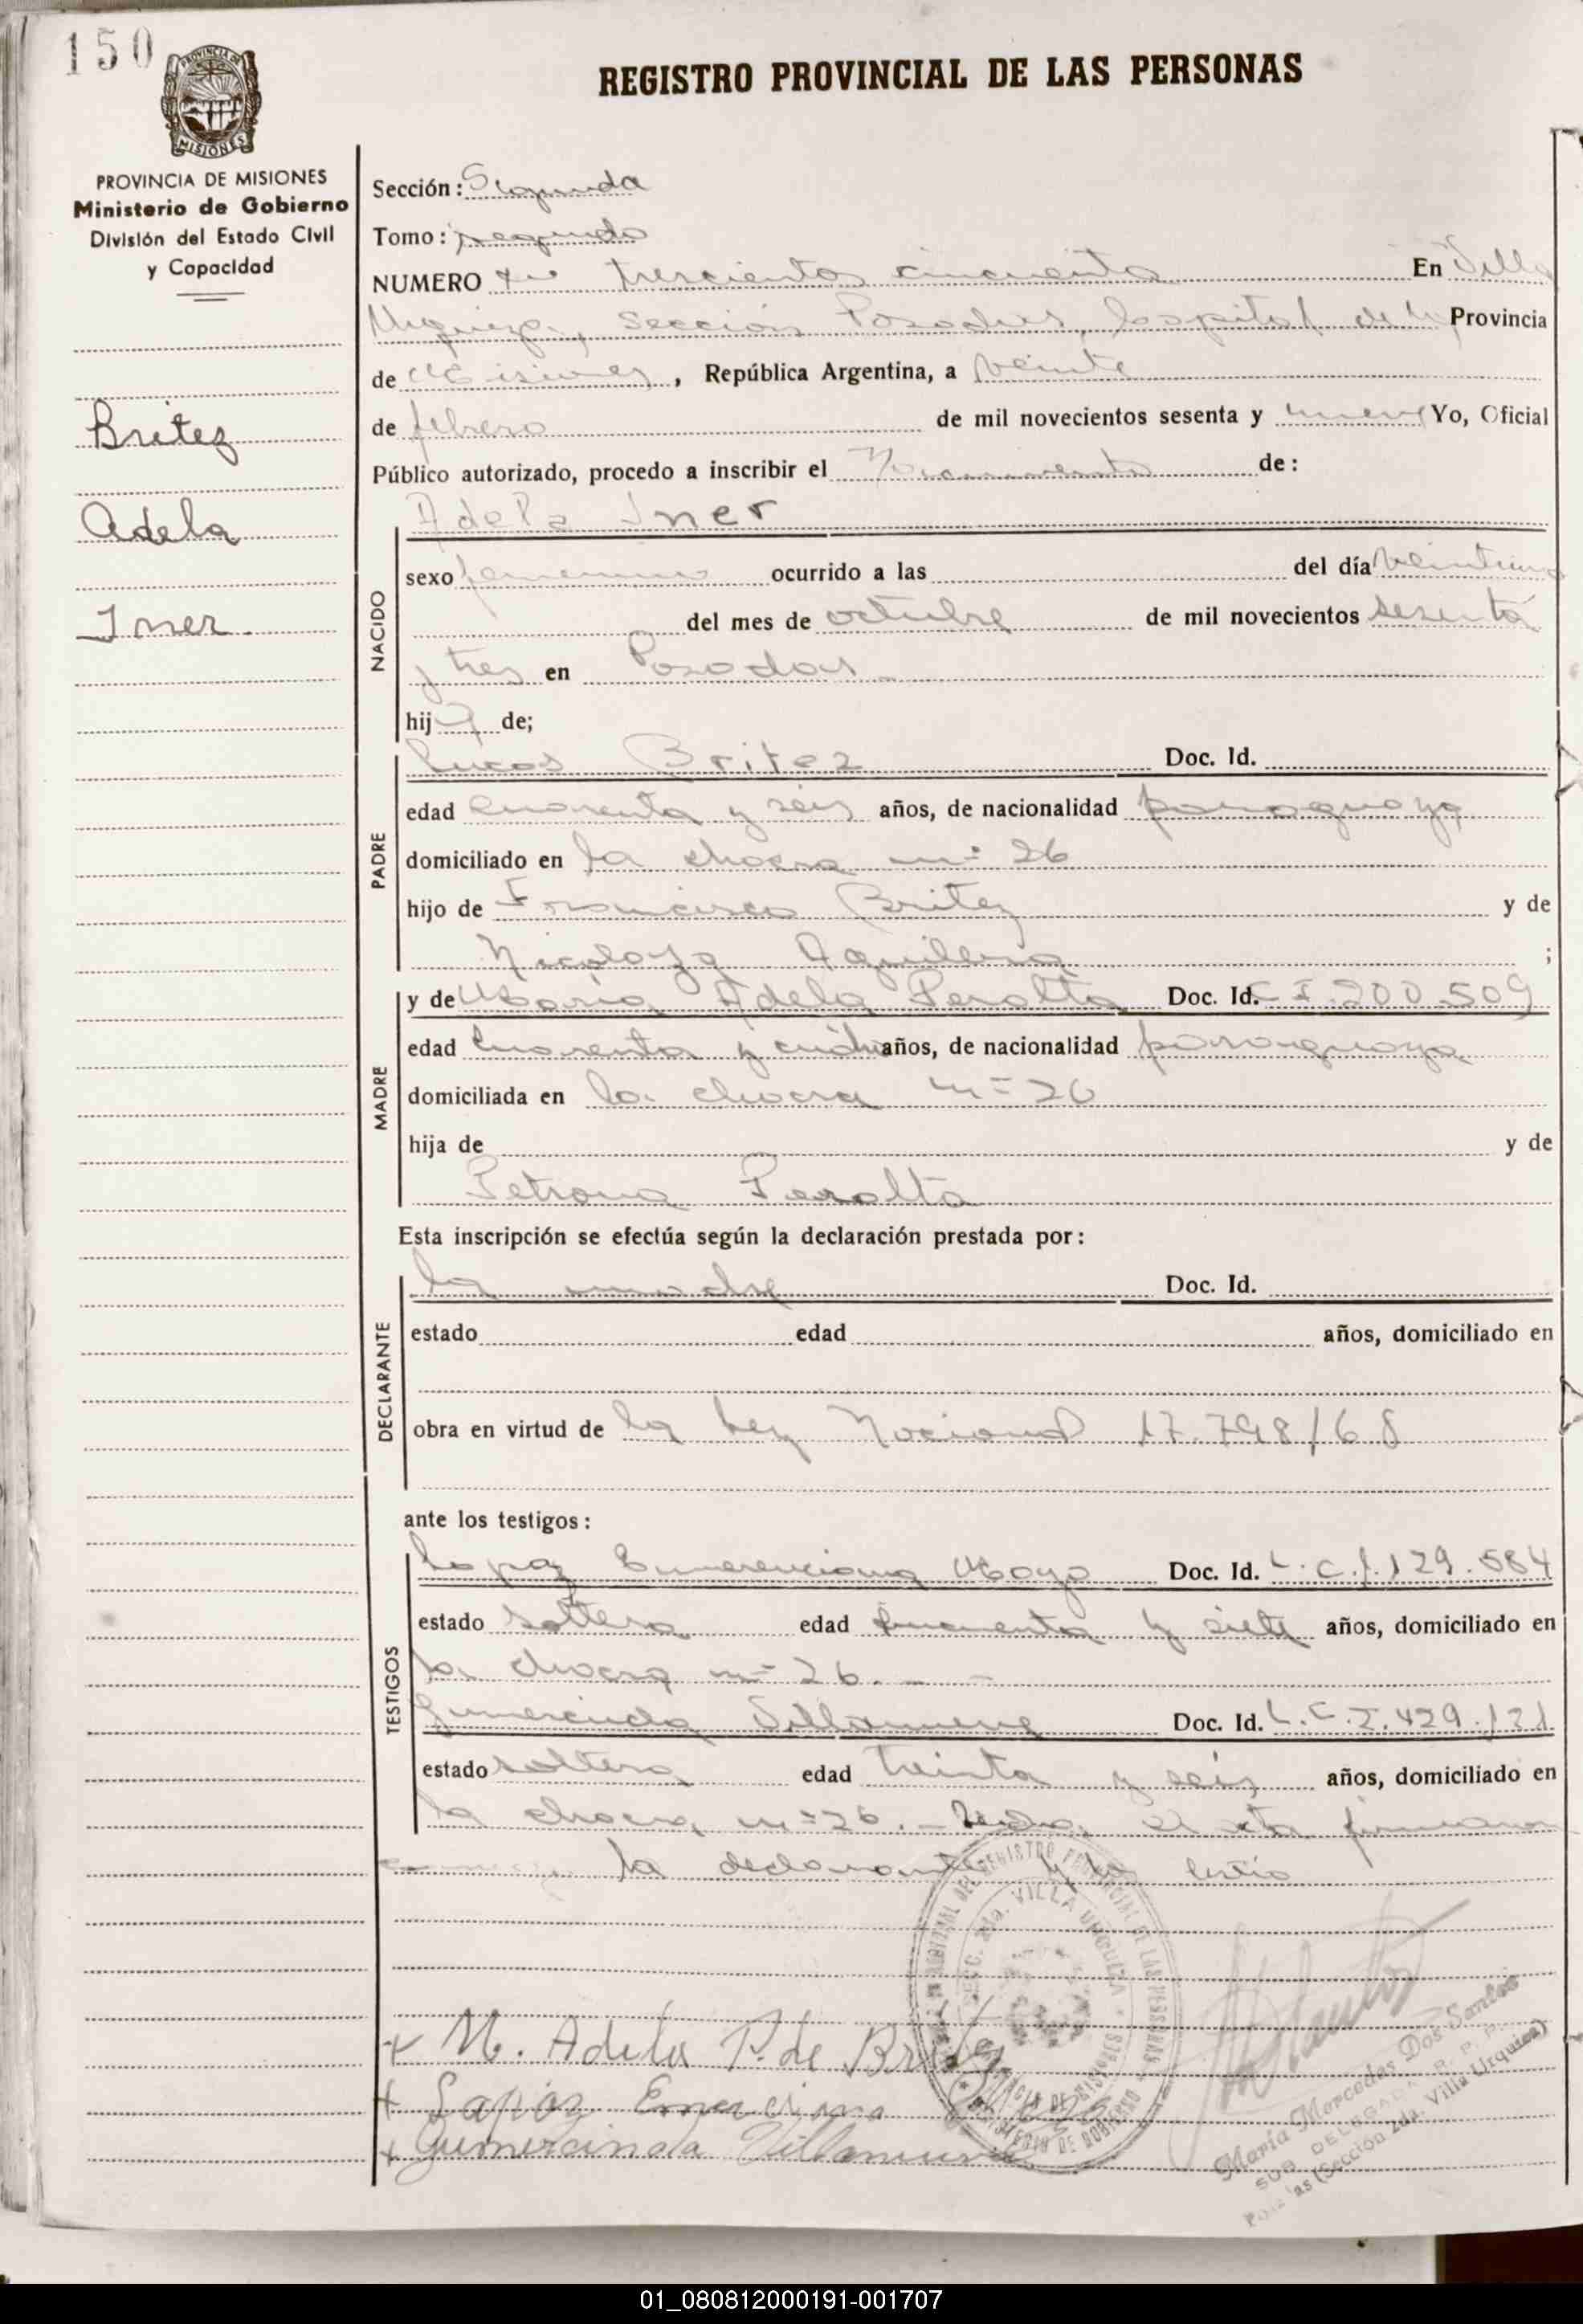 150
PROVINCIA DE MISIONES
REGISTRO PROVINCIAL DE LAS PERSONAS
PROVINCIA DE MISIONES
Ministerio de Gobierno
División del Estado Civil
y Capacidad
Britez
Adela
Iner
Sección: Segunda
Tomo: segundo
NUMERO trescientos cincuenta En Villa
Urquiza, Sección Posadas, Capital de la Provincia
de Misiones, República Argentina, a veinte
de febrero de mil novecientos sesenta y nueve Yo, Oficial
Público autorizado, procedo a inscribir el Nacimiento de:
Adela Iner
NACIDO
sexo femenino ocurrido a las del día veintiuno
del mes de octubre de mil novecientos sesenta
y tres en Posadas
hija de;
PADRE
Lucas Britez Doc. Id.
edad cuarenta y seis años, de nacionalidad paraguaya
domiciliado en la chacra nº 26
hijo de Francisco Britez y de
Nicolaza Aquilera ;
MADRE
y de Maria Adela Peralta Doc. Id. C I. 200.509
edad cuarenta y años, de nacionalidad paraguaya
domiciliada en la chacra nº 26
hija de y de
Petrona Peralta
Esta inscripción se efectúa según la declaración prestada por:
DECLARANTE
la madre Doc. Id.
estado edad años, domiciliado en
obra en virtud de la Ley Nacional 17.798/68
ante los testigos:
TESTIGOS
Emerenciana Doc. Id. L.C. 129.584
estado soltera edad y siete años, domiciliado en
la chacra nº 26.
Gumercinda Villanueva Doc. Id. L.C. 429.121
estado soltera edad treinta y seis años, domiciliado en
la chacra nº 26. - Leida el acta firmaron
la declarante y los
REGISTRO PROVINCIAL DE LAS PERSONAS
SECC. 2da. VILLA URQUIZA
MINISTERIO DE GOBIERNO
+ M. Adela P. de Britez
+ Emerciana
+ Gumercinda Villanueva
María Mercedes Dos Santos
SUB DELEGADA R. P. P.
Posadas (Sección 2da. Villa Urquiza)
01_080812000191-001707